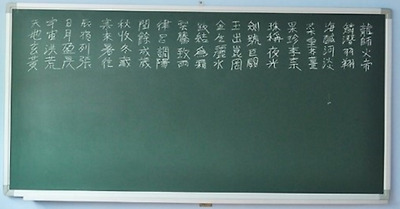 天地玄黃
宇宙洪荒
日月盈昃
辰宿列張
寒來暑往
秋收冬藏
閏餘成歲
律呂調陽
雲騰致雨
露結為霜
金生麗水
玉出崑岡
劍號巨闕
珠稱夜光
果珍李柰
菜重芥薑
海鹹河淡
鱗潛羽翔
龍師火帝